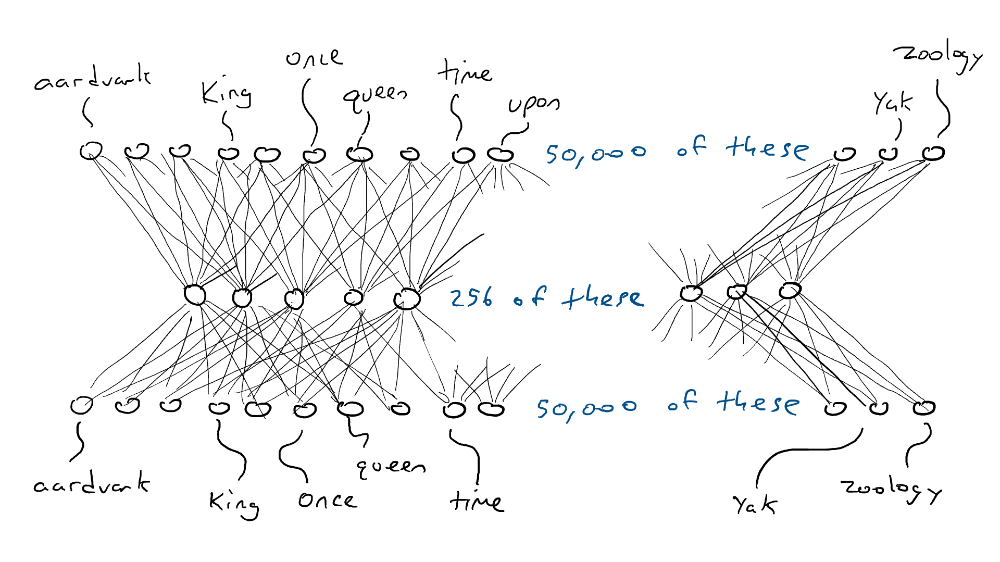 aardvark King once queen time upon yak zoology
50,000 of these
256 of these
50,000 of these
aardvark King once queen time yak zoology